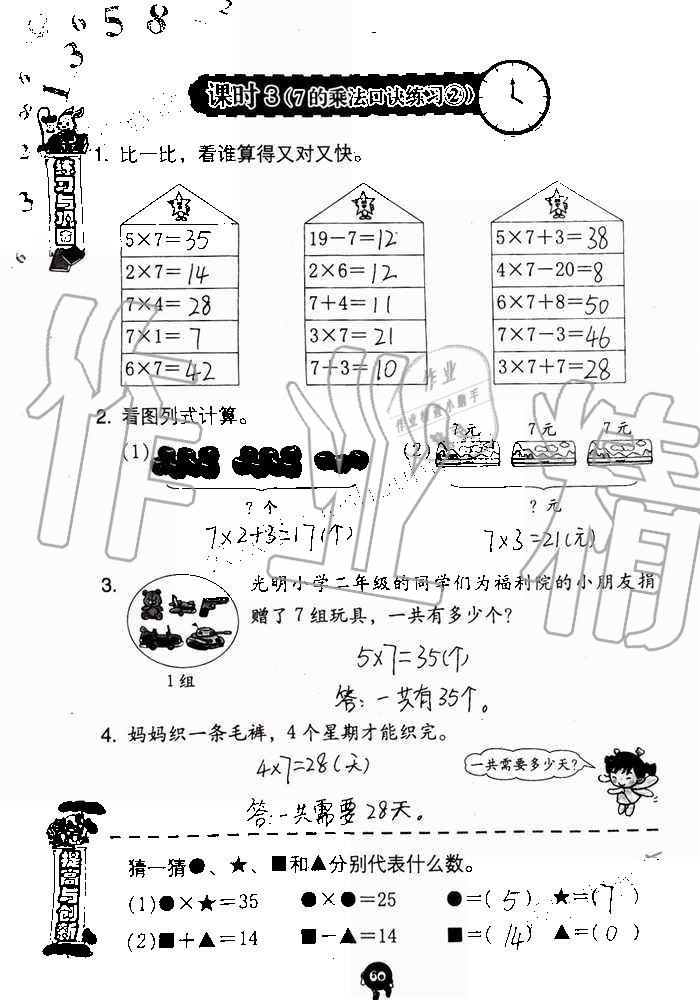 6 5 8 2
课时 3(7的乘法口诀练习②)
练习与巩固
1. 比一比，看谁算得又对又快。
5×7=35
2×7=14
7×4=28
7×1=7
6×7=42
19-7=12
2×6=12
7+4=11
3×7=21
7+3=10
5×7+3=38
4×7-20=8
6×7+8=50
7×7-3=46
3×7+7=28
2. 看图列式计算。
(1)
? 个
7×2+3=17(个)
(2) 7元 7元 7元
? 元
7×3=21(元)
3. 光明小学二年级的同学们为福利院的小朋友捐
赠了 7 组玩具，一共有多少个?
1组
5×7=35(个)
答:一共有35个。
4. 妈妈织一条毛裤，4 个星期才能织完。
4×7=28(天)
一共需要多少天?
答:一共需要28天。
提高与创新
猜一猜●、★、■和▲分别代表什么数。
(1)●×★=35 ●×●=25 ●=(5) ★=(7)
(2)■+▲=14 ■-▲=14 ■=(14) ▲=(0)
60
作业精
作业
作业检查小助手